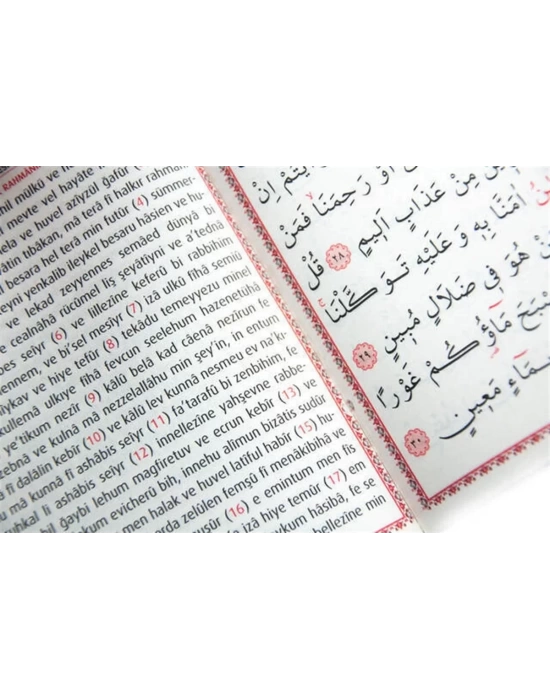 RAHMAN
mil mülkü ve
meyte vel hayâte
ve huvel azîyzül gafûr
tıbâkan, mâ terâ fî halkır rahmân
besara hel terâ min futûr (4) sümmer-
yenkalib ileykel besaru hâsien ve hu-
ve lekad zeyyennes semâed dünyâ bi
cealnâhâ rücûmel liş şeyâtıyni ve a'tednâ
seıyr (6) ve lillezîne keferû bi rabbihim
ve bi'sel mesıyr (7) izâ ulkû fîhâ semiû
ve hiye tefûr (8) tekâdu temeyyezu minel
ulkıye fîhâ fevcun seelehum hazenetühâ
e'tikum nezîr (9) kâlû belâ kad câenâ nezîrun fe
ve kulnâ mâ nezzelallâhu min şey'in, in entum
fî dalâlin kebîr (10) ve kâlû lev kunnâ nesmeu ev na'k-
mâ kunnâ fî ashâbis seıyr (11) fa'terafû bi zenbihim, fe
li ashâbis seıyr (12) innellezîne yahşevne rabbe-
bil ğaybi lehum mağfiretuv ve ecrun kebîr (13) ve
evicherû bih, innehu alîmun bizâtis sudûr
men halak ve huvel latîful habîr (15) hu-
zelûlen femşû fî menâkibihâ ve
(16) e emintum men fis
izâ hiye temûr (17) em
hâsibâ, fe se
bellezîne min
اِنْ
اَوْ رَحِمَنَا فَمَنْ
مِنْ عَذَابٍ اَلِيمٍ ﴿٢٨﴾ قُلْ
اٰمَنَّا بِهِ وَ عَلَيْهِ تَوَكَّلْنَا
هُوَ فِى ضَلَالٍ مُبِينٍ ﴿٢٩﴾
مَاؤُكُمْ غَوْرًا
مَعِينٍ ﴿٣٠﴾